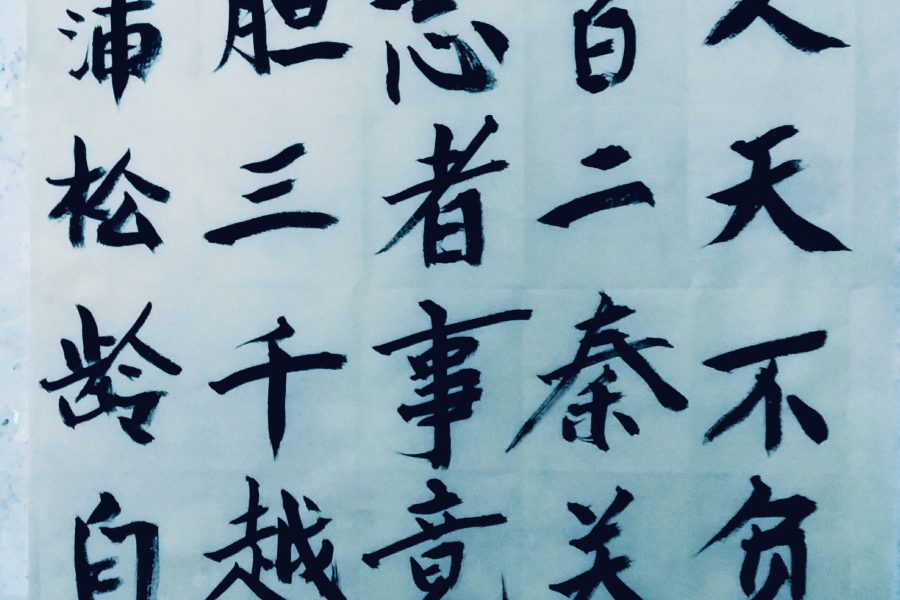 人天不负
百二秦关
志者事竟
胆三千越
蒲松龄自